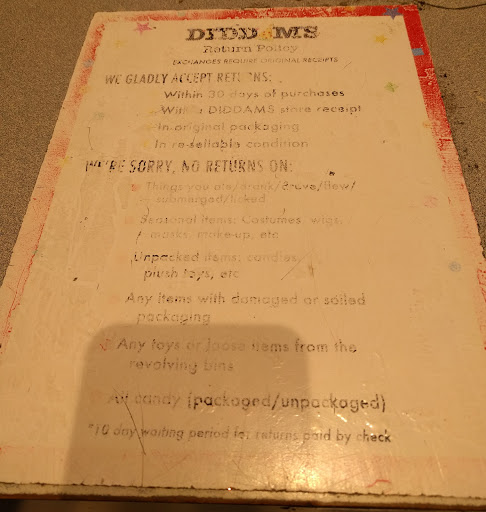 DIDDAMS
Return Policy
EXCHANGES REQUIRE ORIGINAL RECEIPTS
WE GLADLY ACCEPT RETURNS:
Within 30 days of purchases
With a DIDDAMS store receipt
In original packaging
In re-sellable condition
WE'RE SORRY, NO RETURNS ON:
Things you ate/drank/drove/flew/
submerged/licked
Seasonal items: Costumes, wigs,
masks, make-up, etc
Unpacked items: candles,
plush toys, etc
Any items with damaged or soiled
packaging
Any toys or loose items from the
revolving bins
All candy (packaged/unpackaged)
*10 day waiting period for returns paid by check